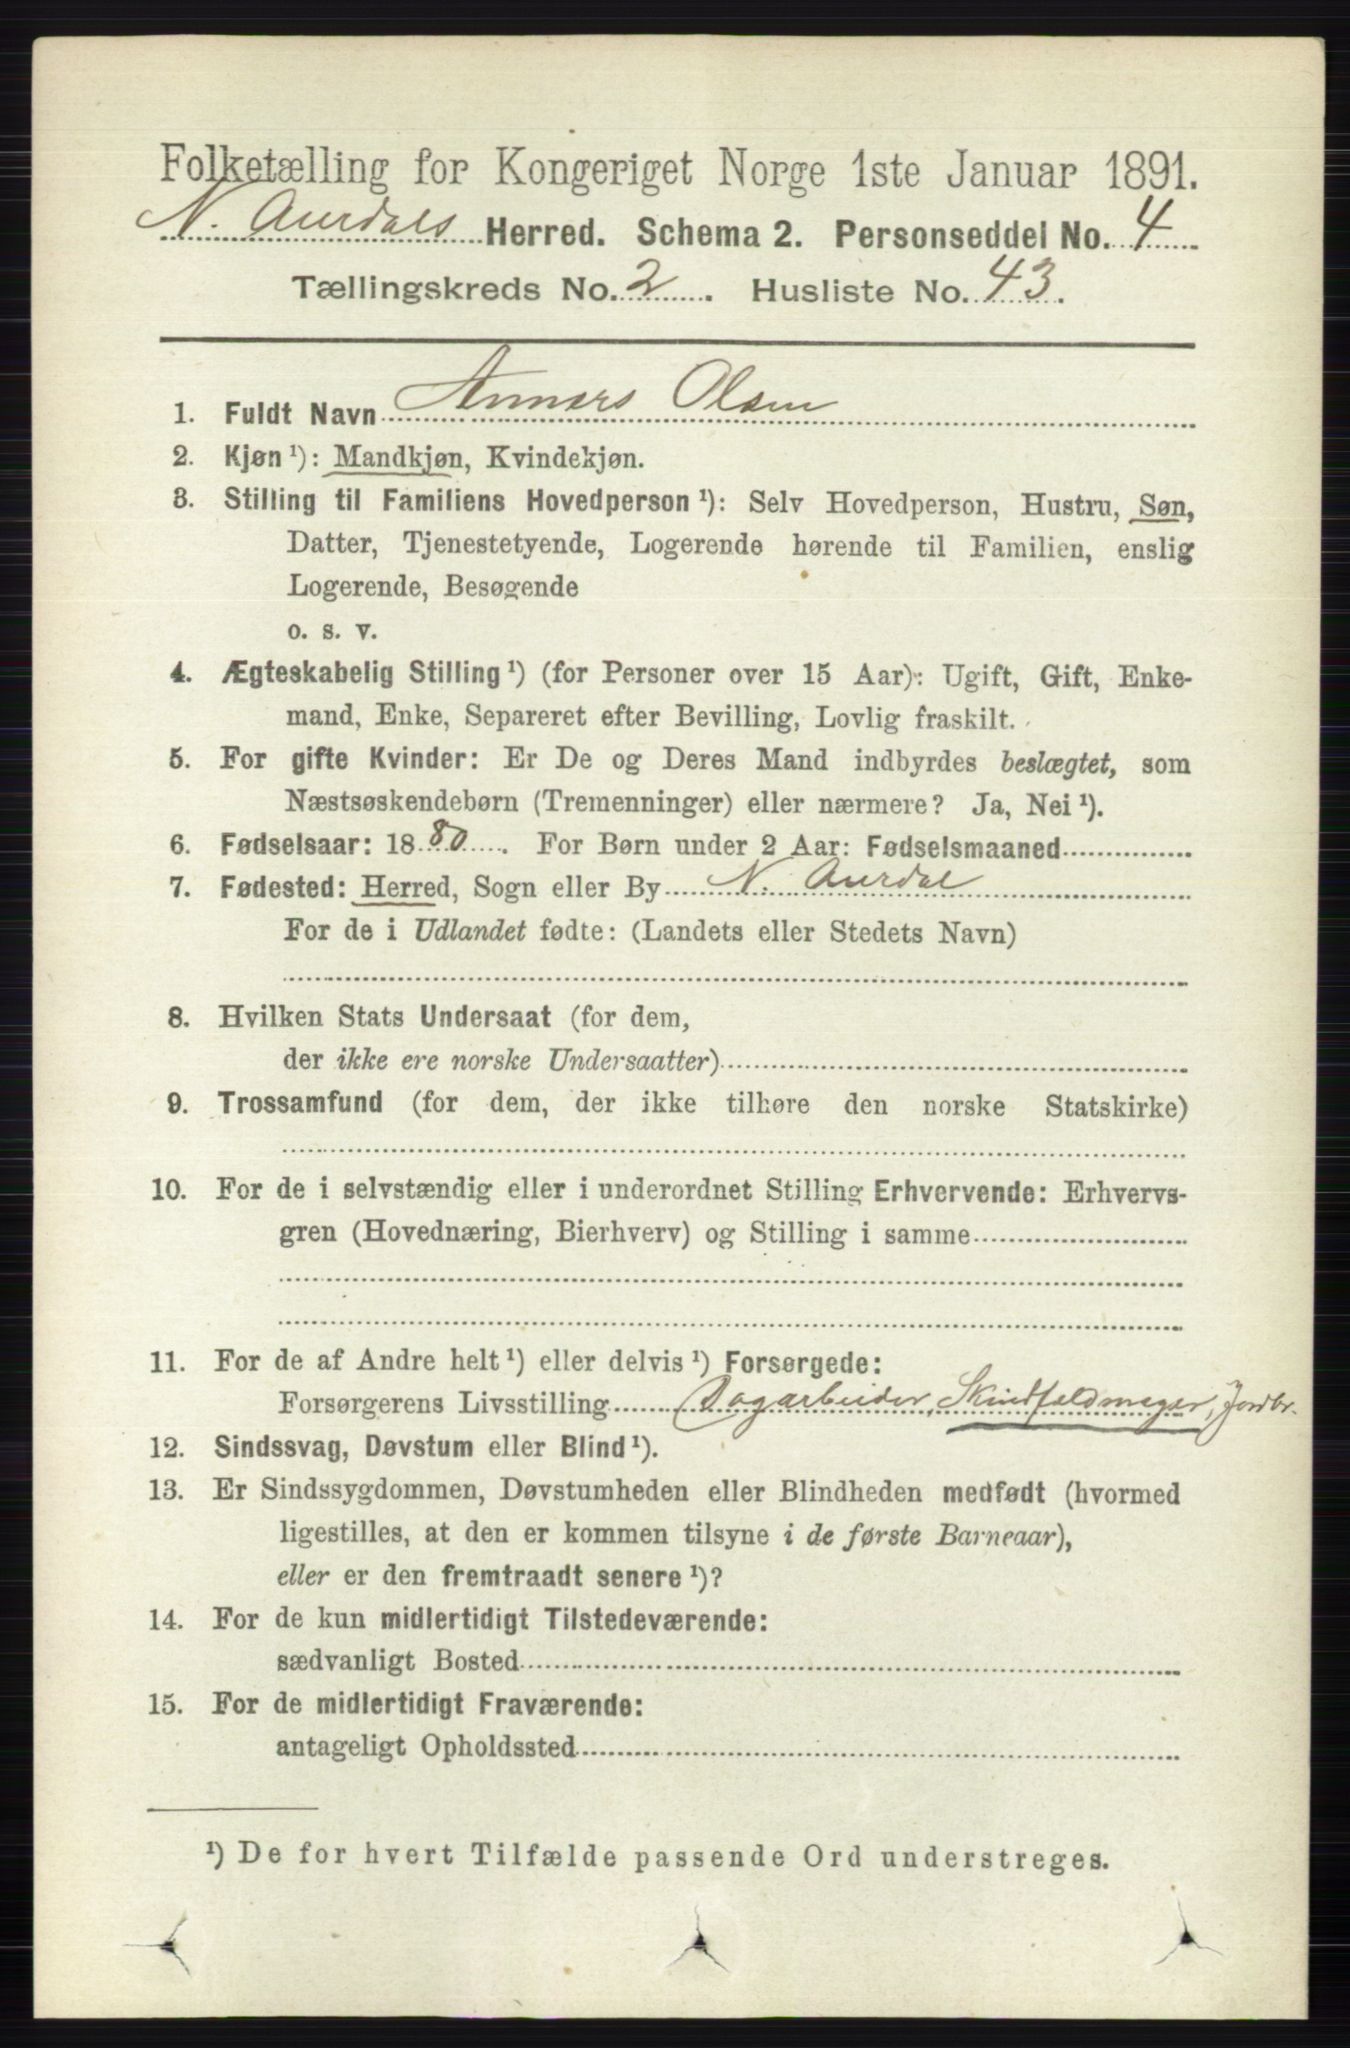 Folketælling for Kongeriget Norge 1ste Januar 1891.
N. Aurdals Herred. Schema 2. Personseddel No. 4
Tællingskreds No. 2. Husliste No. 43.
1. Fuldt Navn Olsen
2. Kjøn ¹): Mandkjøn, Kvindekjøn.
3. Stilling til Familiens Hovedperson ¹): Selv Hovedperson, Hustru, Søn,
Datter, Tjenestetyende, Logerende hørende til Familien, enslig
Logerende, Besøgende
o. s. v.
4. Ægteskabelig Stilling ¹) (for Personer over 15 Aar): Ugift, Gift, Enke-
mand, Enke, Separeret efter Bevilling, Lovlig fraskilt.
5. For gifte Kvinder: Er De og Deres Mand indbyrdes beslægtet, som
Næstsøskendebørn (Tremenninger) eller nærmere? Ja, Nei ¹).
6. Fødselsaar: 1880. For Børn under 2 Aar: Fødselsmaaned
7. Fødested: Herred, Sogn eller By N. Aurdal
For de i Udlandet fødte: (Landets eller Stedets Navn)
8. Hvilken Stats Undersaat (for dem,
der ikke ere norske Undersaatter)
9. Trossamfund (for dem, der ikke tilhøre den norske Statskirke)
10. For de i selvstændig eller i underordnet Stilling Erhvervende: Erhvervs-
gren (Hovednæring, Bierhverv) og Stilling i samme
11. For de af Andre helt ¹) eller delvis ¹) Forsørgede:
Forsørgerens Livsstilling Dagarbeider, Skindfeldmager, Jordbr.
12. Sindssvag, Døvstum eller Blind ¹).
13. Er Sindssygdommen, Døvstumheden eller Blindheden medfødt (hvormed
ligestilles, at den er kommen tilsyne i de første Barneaar),
eller er den fremtraadt senere ¹)?
14. For de kun midlertidigt Tilstedeværende:
sædvanligt Bosted
15. For de midlertidigt Fraværende:
antageligt Opholdssted
¹) De for hvert Tilfælde passende Ord understreges.